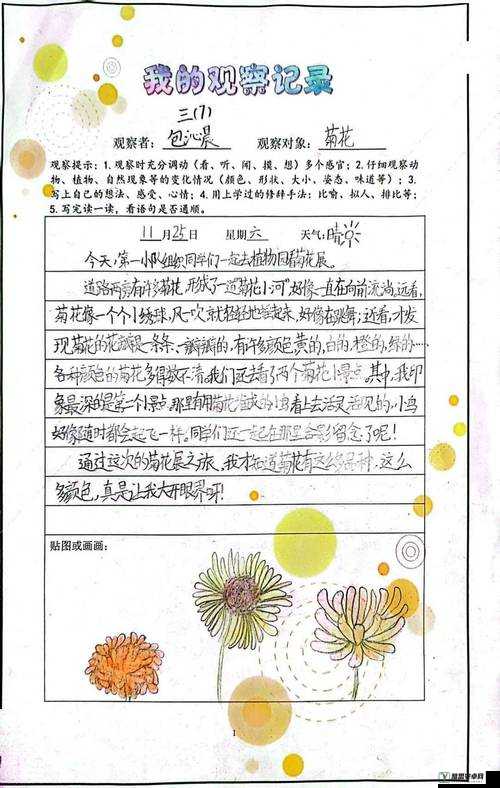 我的观察记录
三(7)
观察者：包沁晨 观察对象：菊花
观察提示：1.观察时充分调动（看、听、闻、摸、想）多个感官；2.仔细观察动
物、植物、自然现象等的变化情况（颜色、形状、大小、姿态、味道等）；3.
写上自己的想法、感受、心情；4.用上学过的修辞手法：比喻、拟人、排比等；
5.写完读一读，看语句是否通顺。
11月25日 星期六 天气：晴
今天，第一小队组织同学们一起去植物园看菊花展。
道路两旁有许多菊花，形成了一道"菊花小河"好像一直在向前流淌。远看，
菊花像一个个小绣球，风一吹就轻轻地摇起来，好像在跳舞；近看，才发
现菊花的花瓣是一条条、一瓣瓣的，有许多颜色黄的，白的，橙的，绿的……
各种颜色的菊花多得数不清。我们还去看了两个菊花小景点，其中，我印
象最深的是第一个景点，那里有用菊花造成的小鸟看上去活灵活见的，小鸟
好像随时都会起飞一样。同学们还一起在那里合影留念了呢！
通过这次的菊花展之旅，我才知道菊花有这么多品种，这么
多颜色，真是让我大开眼界呀！
贴图或画画：
1